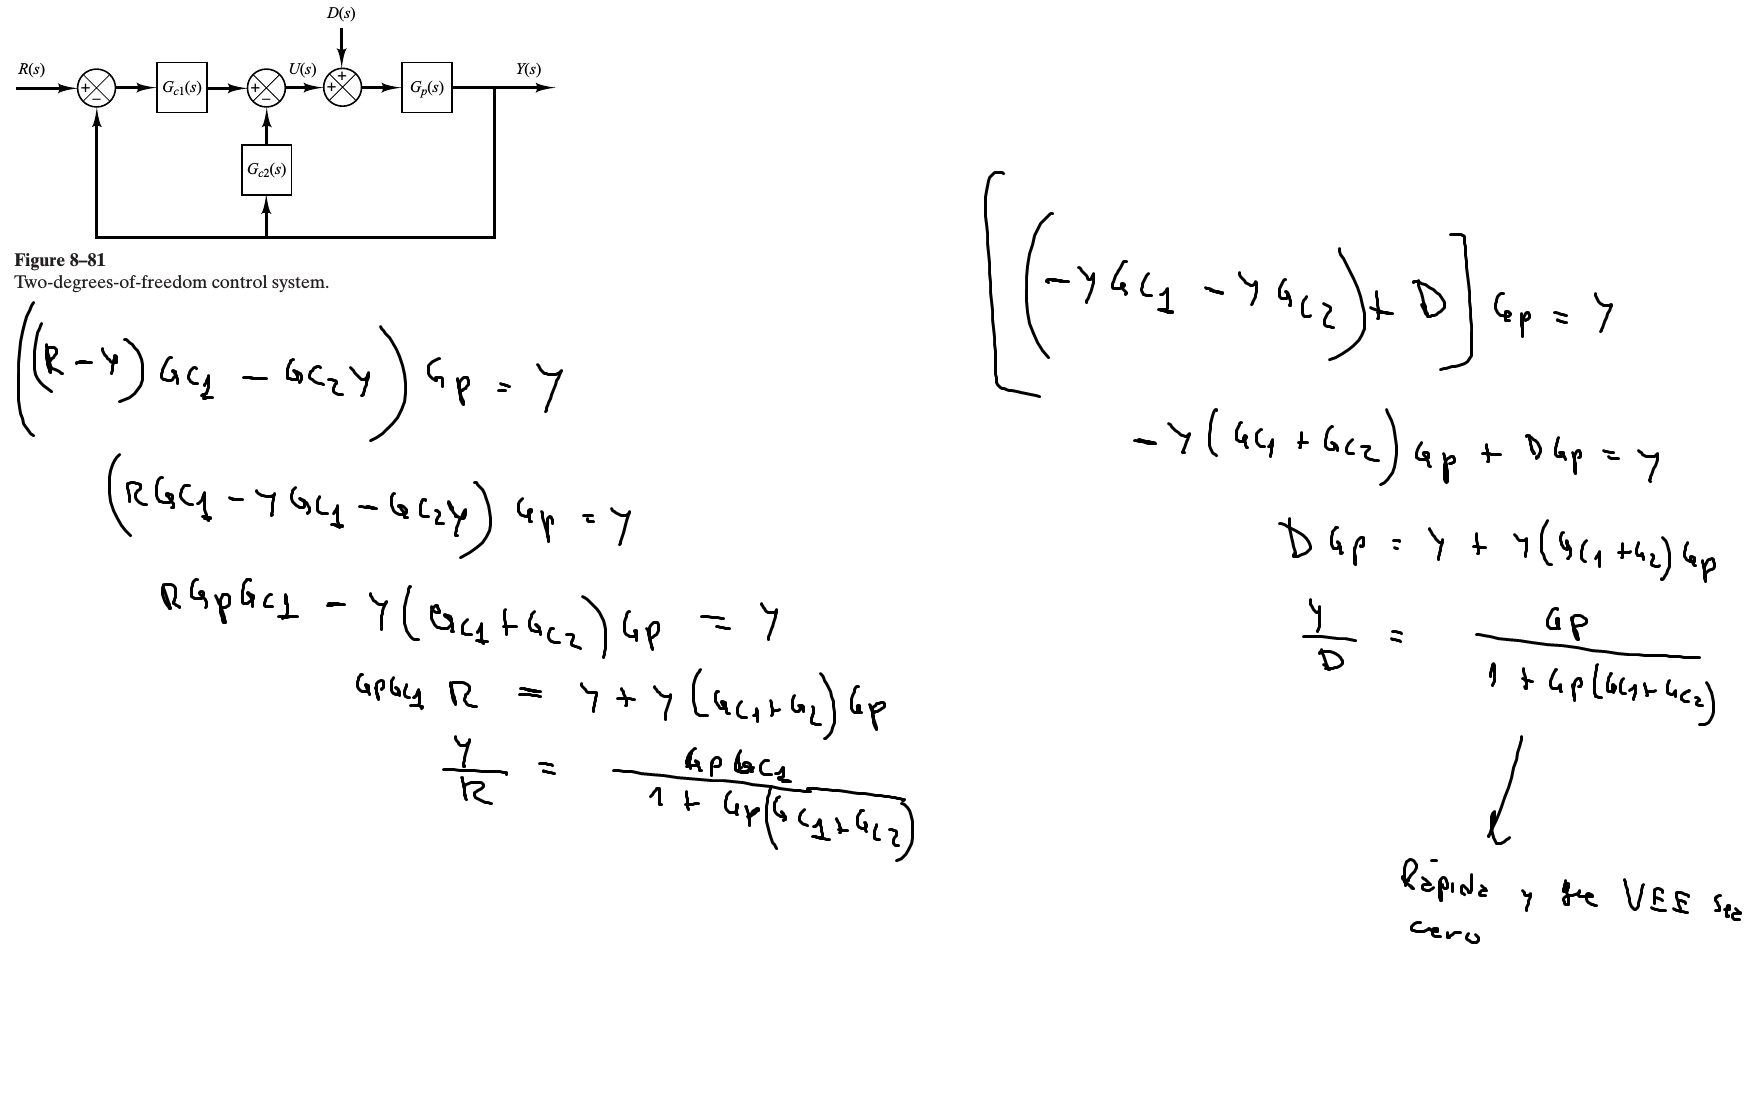 D(s)
R(s)
U(s)
Y(s)
+
−
Gc1(s)
+
−
+
+
Gp(s)
Gc2(s)
Figure 8–81
Two-degrees-of-freedom control system.
((R − Y) GC1 − GC2 Y) Gp = Y
(R GC1 − Y GC1 − GC2 Y) Gp = Y
R Gp GC1 − Y (GC1 + GC2) Gp = Y
Gp GC1 R = Y + Y (GC1 + G2) Gp
Y / R = Gp GC1 / 1 + Gp (GC1 + GC2)
[(−Y GC1 − Y GC2) + D] Gp = Y
−Y (GC1 + GC2) Gp + D Gp = Y
D Gp = Y + Y (GC1 + G2) Gp
Y / D = Gp / 1 + Gp (GC1 + GC2)
Rápida y que VEE sea
cero